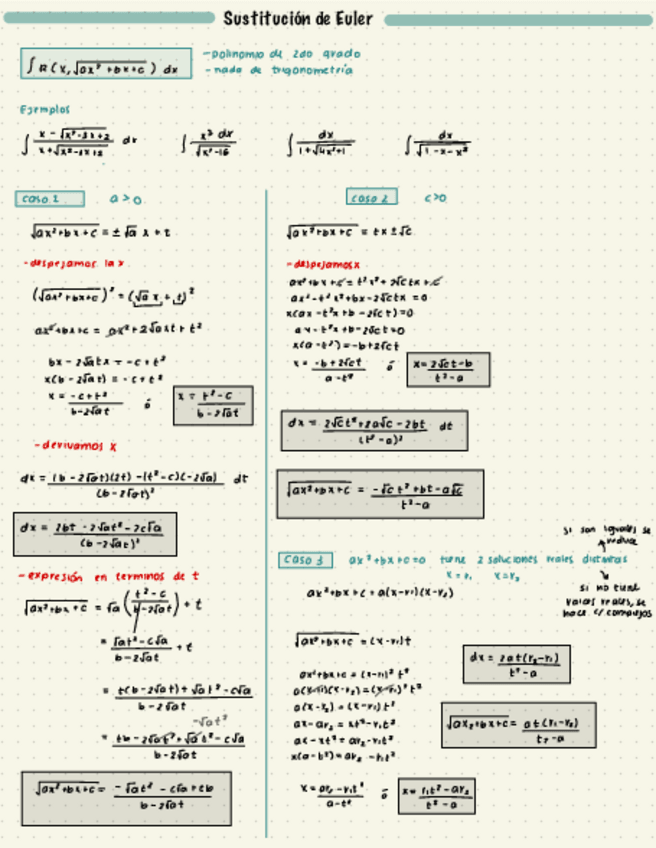 Sustitución de Euler
∫ R(x, √ax²+bx+c) dx
-polinomio de 2do grado
-nada de trigonometría
Ejemplos
∫ (x-√x²-3x+2)/(x+√x²-3x+2) dx ∫ x² dx/√x²-16 ∫ dx/(1+√4x²+1) ∫ dx/√1-x-x²
caso 1 a>0
√ax²+bx+c = ±√a x + t
-despejamos la x
(√ax²+bx+c)² = (√a x + t)²
ax²+bx+c = ax²+2√a xt + t²
bx - 2√a tx = -c+t²
x(b-2√at) = -c+t²
x = (-c+t²)/(b-2√at) ó x = (t²-c)/(b-2√at)
-derivamos x
dx = ((b-2√at)(2t)-(t²-c)(-2√a))/(b-2√at)² dt
dx = (2bt-2√at²-2c√a)/(b-2√at)²
-expresión en terminos de t
√ax²+bx+c = √a((t²-c)/(b-2√at)) + t
= (√at²-c√a)/(b-2√at) + t
= (t(b-2√at)+√at²-c√a)/(b-2√at)
-√at²
= (tb-2√at²+√at²-c√a)/(b-2√at)
√ax²+bx+c = (-√at²-c√a+tb)/(b-2√at)
caso 2 c>0
√ax²+bx+c = tx±√c
-despejamos x
ax²+bx+c = t²x²+2√ctx+c
ax²-t²x²+bx-2√ctx = 0
x(ax-t²x+b-2√ct) = 0
ax-t²x+b-2√ct = 0
x(a-t²) = -b+2√ct
x = (-b+2√ct)/(a-t²) ó x = (2√ct-b)/(t²-a)
dx = (2√ct²+2a√c-2bt)/(t²-a)² dt
√ax²+bx+c = (-√ct²+bt-a√c)/(t²-a)
si son iguales se
reduce
caso 3 ax²+bx+c=0 tiene 2 soluciones reales distintas
x=r₁ x=r₂
si no tiene
raices reales, se
hace c/ complejos
ax²+bx+c = a(x-r₁)(x-r₂)
√ax²+bx+c = (x-r₁)t
ax²+bx+c = (x-r₁)²t²
a(x-r₁)(x-r₂) = (x-r₁)²t²
a(x-r₂) = (x-r₁)t²
ax-ar₂ = xt²-r₁t²
ax-xt² = ar₂-r₁t²
x(a-t²) = ar₂-r₁t²
x = (ar₂-r₁t²)/(a-t²) ó x = (r₁t²-ar₂)/(t²-a)
dx = 2at(r₂-r₁)/(t²-a)
√ax²+bx+c = at(r₁-r₂)/(t²-a)